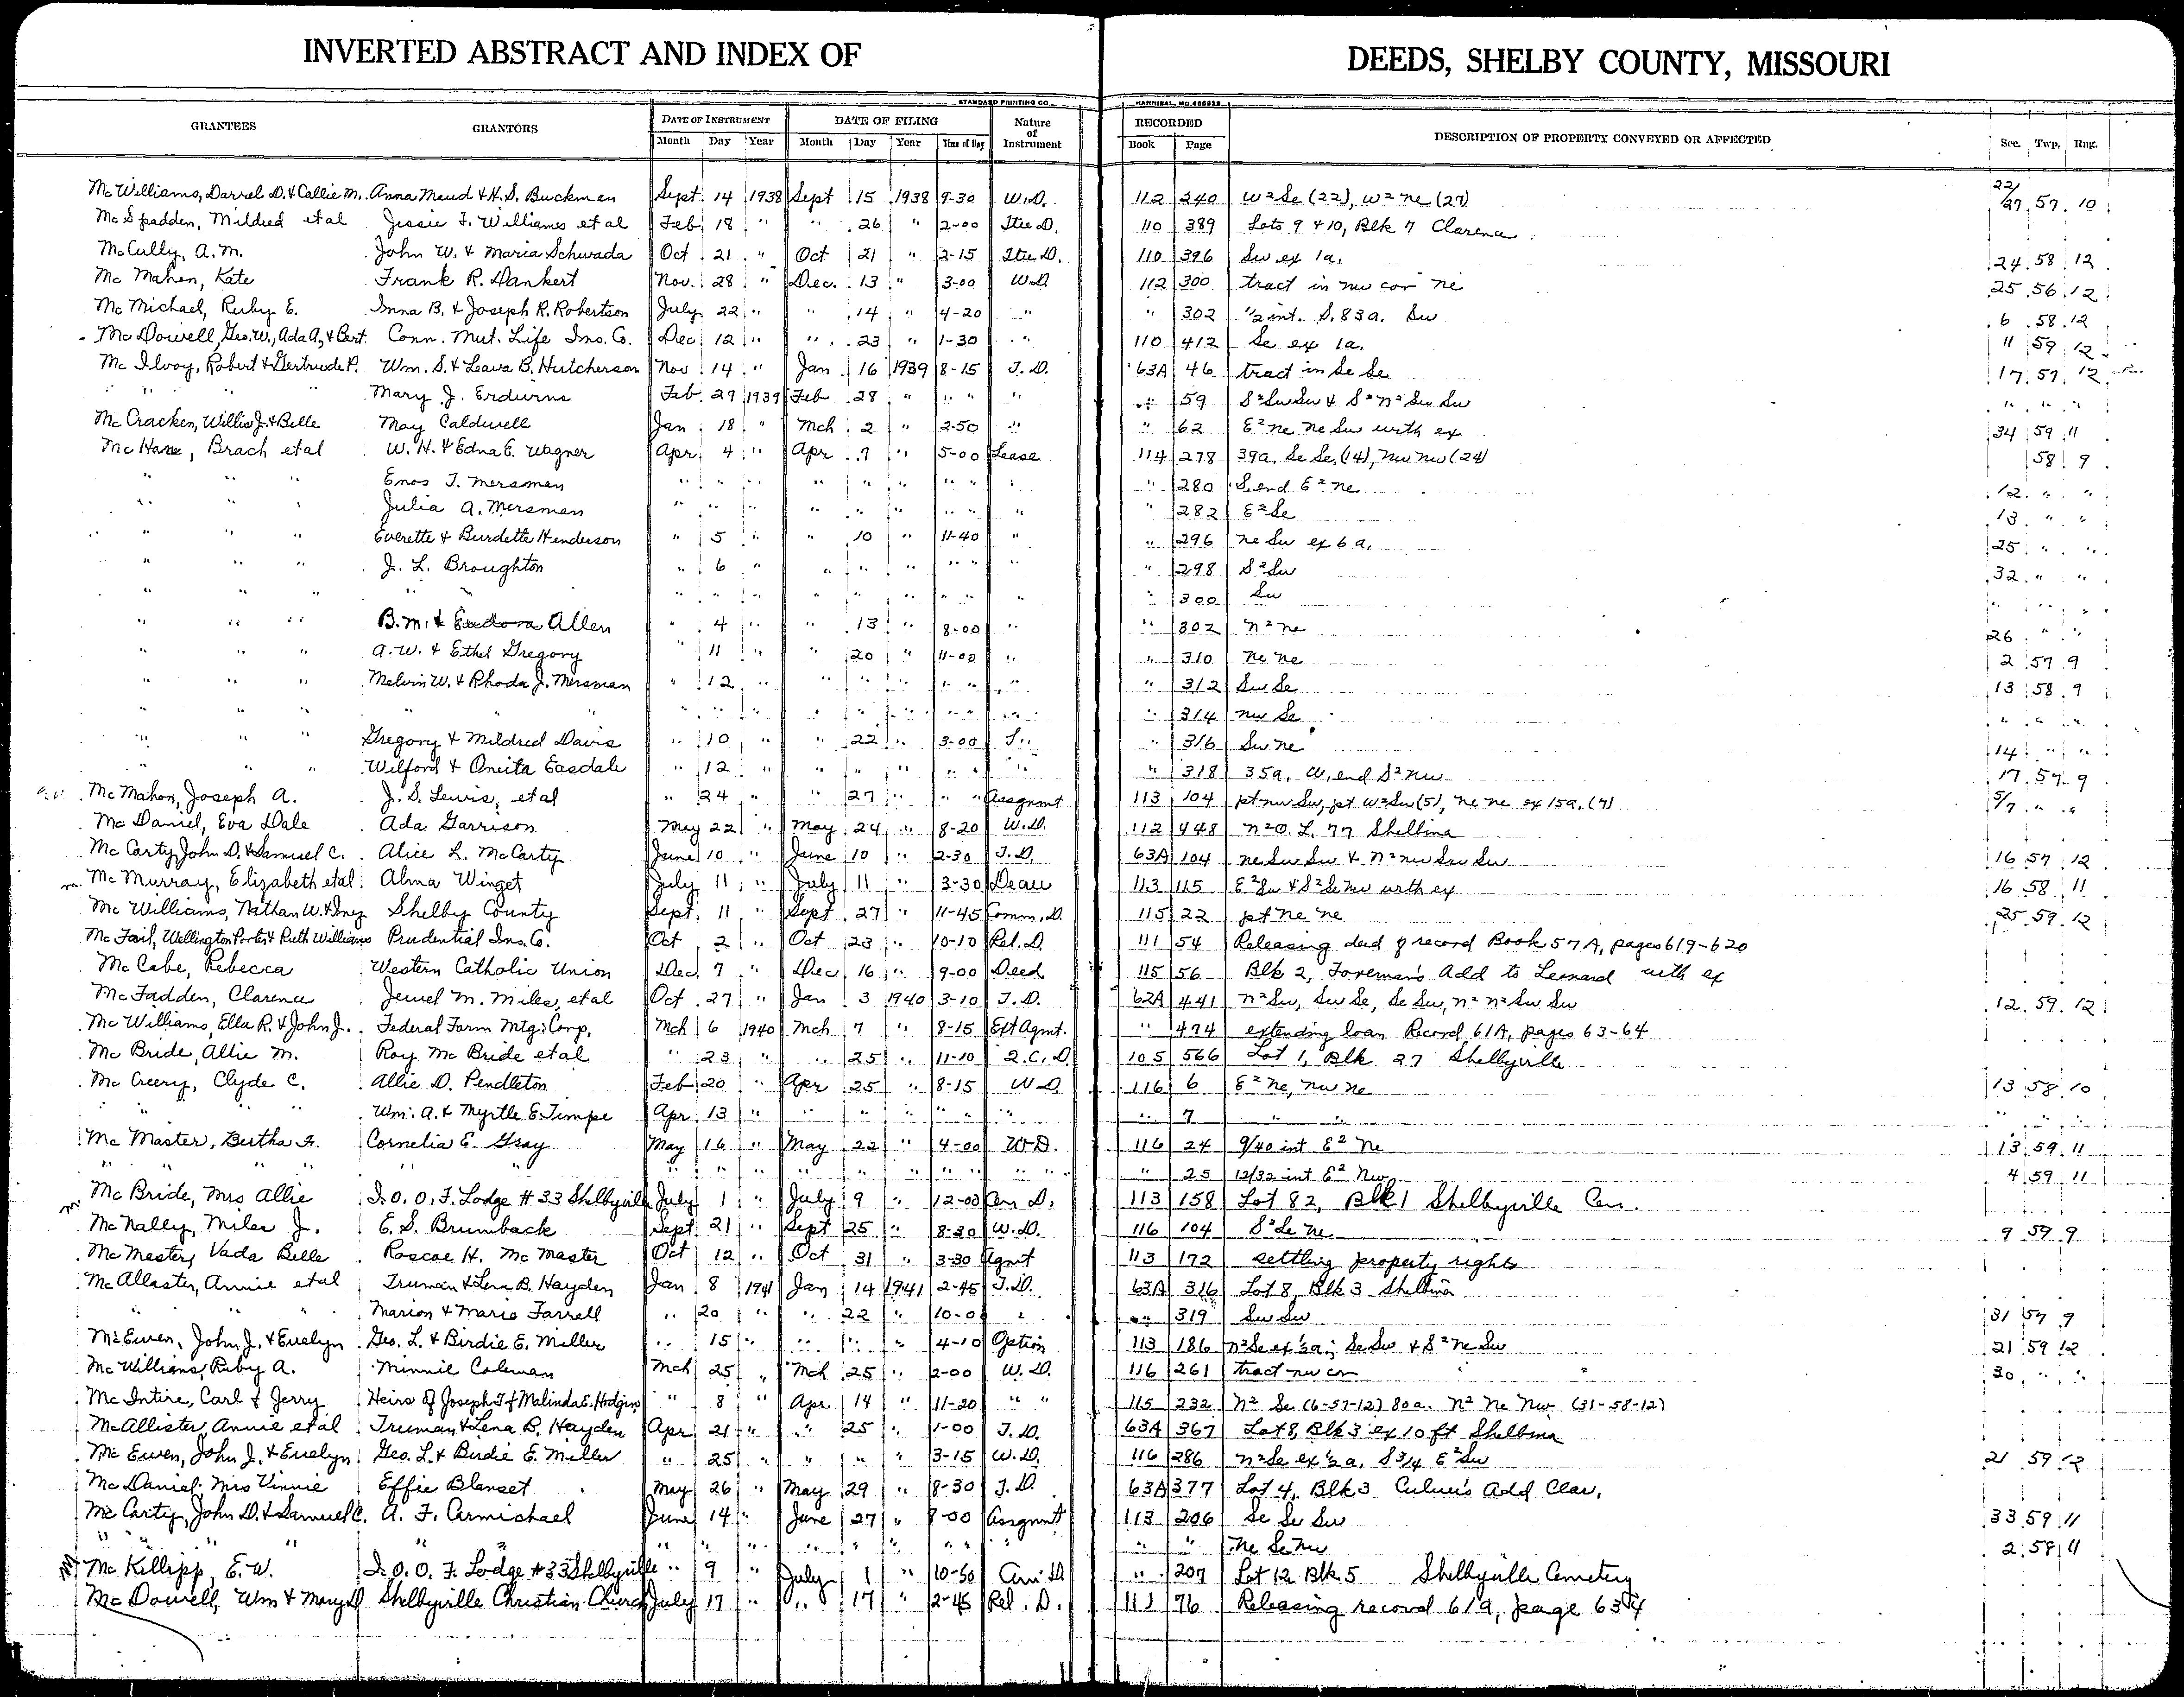 INVERTED ABSTRACT AND INDEX OF DEEDS, SHELBY COUNTY, MISSOURI
STANDARD PRINTING CO. HANNIBAL, MO.
GRANTEES GRANTORS DATE OF INSTRUMENT DATE OF FILING Nature of Instrument RECORDED DESCRIPTION OF PROPERTY CONVEYED OR AFFECTED Sec. Twp. Rng.
Month Day Year Month Day Year Time of Day Book Page
McWilliams, Darrel D. & Callie M. Anna Maud & H. S. Buckman Sept 14 1938 Sept 15 1938 9-30 W.D. 112 240 W² Se (22), W² ne (27) 22/27 57 10
McSpadden, Mildred et al Jessie F. Williams et al Feb 18 " " 26 " 2-00 Itee D. 110 389 Lots 9 & 10, Blk 7 Clarence
McCully, A. M. John W. & Maria Schwada Oct 21 " Oct 21 " 2-15 Itee D. 110 396 Sw ex 1a. 24 58 12
McMahon, Kate Frank R. Dankert Nov. 28 " Dec. 13 " 3-00 W.D. 112 300 tract in nw cor ne 25 56 12
McMichael, Ruby E. Inna B. & Joseph R. Robertson July 22 " " 14 " 4-20 " " 302 ½ int. S. 83a. Sw 6 58 12
McDowell, Geo. W., Ada A., & Bert Conn. Mut. Life Ins. Co. Dec 12 " " 23 " 1-30 " 110 412 Se ex 1a. 11 59 12
McIlvoy, Robert & Gertrude P. Wm. S. & Leava B. Hutcherson Nov 14 " Jan 16 1939 8-15 T.D. 63A 46 tract in Se Se 17 57 12
" " " Mary J. Erdwins Feb 27 1939 Feb 28 " " " " " 59 S² Sw Sw & S² n² Sw Sw " " "
McCracken, Willis J. & Belle May Caldwell Jan 18 " Mch 2 " 2-50 " " 62 E² ne ne Sw with ex 34 59 11
McHane, Brach et al W. H. & Edna E. Wagner Apr 4 " Apr 7 " 5-00 Lease 114 278 39a. Se Se (14), nw nw (24) 58 9
" " " Enos T. Mersman " " " " " " " " " " 280 S. end E² ne 12 " "
" " " Julia A. Mersman " " " " " " " " " " 282 E² Se 13 " "
" " " Everette & Burdette Henderson " 5 " " 10 " 11-40 " " 296 ne Sw ex 6a. 25 " "
" " " J. L. Broughton " 6 " " " " " " " 298 S² Sw 32 " "
" " " " " " " " " " " " " " " 300 Sw " " "
" " " B. M. & Eudora Allen " 4 " " 13 " 8-00 " " 302 n² ne 26 " "
" " " A. W. & Ethel Gregory " 11 " " 20 " 11-00 " " 310 ne ne 2 57 9
" " " Melvin W. & Rhoda J. Mersman " 12 " " " " " " " " 312 Sw Se 13 58 9
" " " " " " " " " " " " " " " 314 nw Se " " "
" " " Gregory & Mildred Davis " 10 " " 22 " 3-00 " " 316 Sw ne 14 " "
" " " Wilford & Oneita Easdale " 12 " " " " " " " " 318 35a. W. end S² nw 17 57 9
McMahon, Joseph A. J. S. Lewis, et al " 24 " " 27 " " " Assgnmt 113 104 pt nw Sw, pt W² Sw (5), ne ne ex 15a. (7) 5/7 " "
McDaniel, Eva Dale Ada Garrison May 22 " May 24 " 8-20 W.D. 112 448 n² O. L. 77 Shelbina
McCarty, John D. & Samuel C. Alice L. McCarty June 10 " June 10 " 2-30 T.D. 63A 104 ne Sw Sw & n² nw Sw Sw 16 57 12
McMurray, Elizabeth et al Alma Winget July 11 " July 11 " 3-30 113 115 E² Sw & S² Se nw with ex 16 58 11
McWilliams, Nathan W. & Inez Shelby County Sept. 11 " Sept 27 " 11-45 Comm. D. 115 22 pt ne ne 25 59 12
McFail, Wellington Porter & Ruth Williams Prudential Ins. Co. Oct 2 " Oct 23 " 10-10 Rel. D. 111 54 Releasing deed of record Book 57A, pages 619-620
McCabe, Rebecca Western Catholic Union Dec 7 " Dec 16 " 9-00 Deed 115 56 Blk 2, Foreman's Add to Leonard with ex
McFadden, Clarence Jewel M. Miles, et al Oct 27 " Jan 3 1940 3-10 T.D. 62A 441 n² Sw, Sw Se, Se Sw, n² n² Sw Sw 12 59 12
McWilliams, Ella R. & John J. Federal Farm Mtg. Corp. Mch 6 1940 Mch 7 " 8-15 Ext Agmt. " 474 extending loan Record 61A, pages 63-64
McBride, Allie M. Roy McBride et al " 23 " " 25 " 11-10 Q.C.D. 105 566 Lot 1, Blk 27 Shelbyville
McCreery, Clyde C. Allie D. Pendleton Feb 20 " Apr 25 " 8-15 W.D. 116 6 E² ne, nw ne 13 58 10
" " " Wm. A. & Myrtle E. Timpe Apr 13 " " " " " " " " 7 " " " " "
McMaster, Bertha F. Cornelia E. Gray May 16 " May 22 " 4-00 W.D. 116 24 9/40 int E² Ne 13 59 11
" " " " " " " " " " " " " " " 25 12/32 int E² Nw 4 59 11
McBride, Mrs Allie I.O.O.F. Lodge #33 Shelbyville July 1 " July 9 " 12-00 Cem D. 113 158 Lot 82, Blk 1 Shelbyville Cem.
McNally, Miles J. E. S. Brumback Sept 21 " Sept 25 " 8-30 W.D. 116 104 S² Se ne 9 59 9
McMaster, Vada Belle Roscoe H. McMaster Oct 12 " Oct 31 " 3-30 Agmt 113 172 settling property rights
McAllaster, Annie et al Truman & Lena B. Hayden Jan 8 1941 Jan 14 1941 2-45 T.D. 63A 316 Lot 8, Blk 3 Shelbina
" " " Marion & Marie Farrell " 20 " " 22 " 10-00 " " 319 Sw Sw 31 57 9
McEwen, John J. & Evelyn Geo. L. & Birdie E. Miller " 15 " " " " 4-10 Option 113 186 n² Se ex ½a; Se Sw & S² ne Sw 21 59 12
McWilliams, Ruby A. Minnie Coleman Mch 25 " Mch 25 " 2-00 W.D. 116 261 tract nw cor 30 " "
McIntire, Carl & Jerry Heirs of Joseph T. & Malinda E. Hodgins " 8 " Apr. 14 " 11-20 " " 115 232 N² Se (6-57-12) 80a. N² Ne Nw (31-58-12)
McAllister, Annie et al Truman & Lena B. Hayden Apr 21 " " 25 " 1-00 T.D. 63A 367 Lot 8, Blk 3 ex 10 ft Shelbina
McEwen, John J. & Evelyn Geo. L. & Birdie E. Miller " 25 " " " " 3-15 W.D. 116 286 n² Se ex ½a. S 3/4 E² Sw 21 59 12
McDaniel, Mrs Vinnie Effie Blanset May 26 " May 29 " 8-30 T.D. 63A 377 Lot 4, Blk 3 Culver's Add Clar.
McCarty, John D. & Samuel C. A. F. Carmichael June 14 " June 27 " 8-00 Assgnmt 113 206 Se Se Sw 33 59 11
" " " " " " " " " " " " " " Ne Se Nw 2 58 11
McKillipp, E. W. I.O.O.F. Lodge #33 Shelbyville " 9 " July 1 " 10-50 Cem D " 207 Lot 12 Blk 5 Shelbyville Cemetery
McDowell, Wm & Mary D Shelbyville Christian Church July 17 " " 17 " 2-45 Rel. D. 111 76 Releasing record 61a, page 634